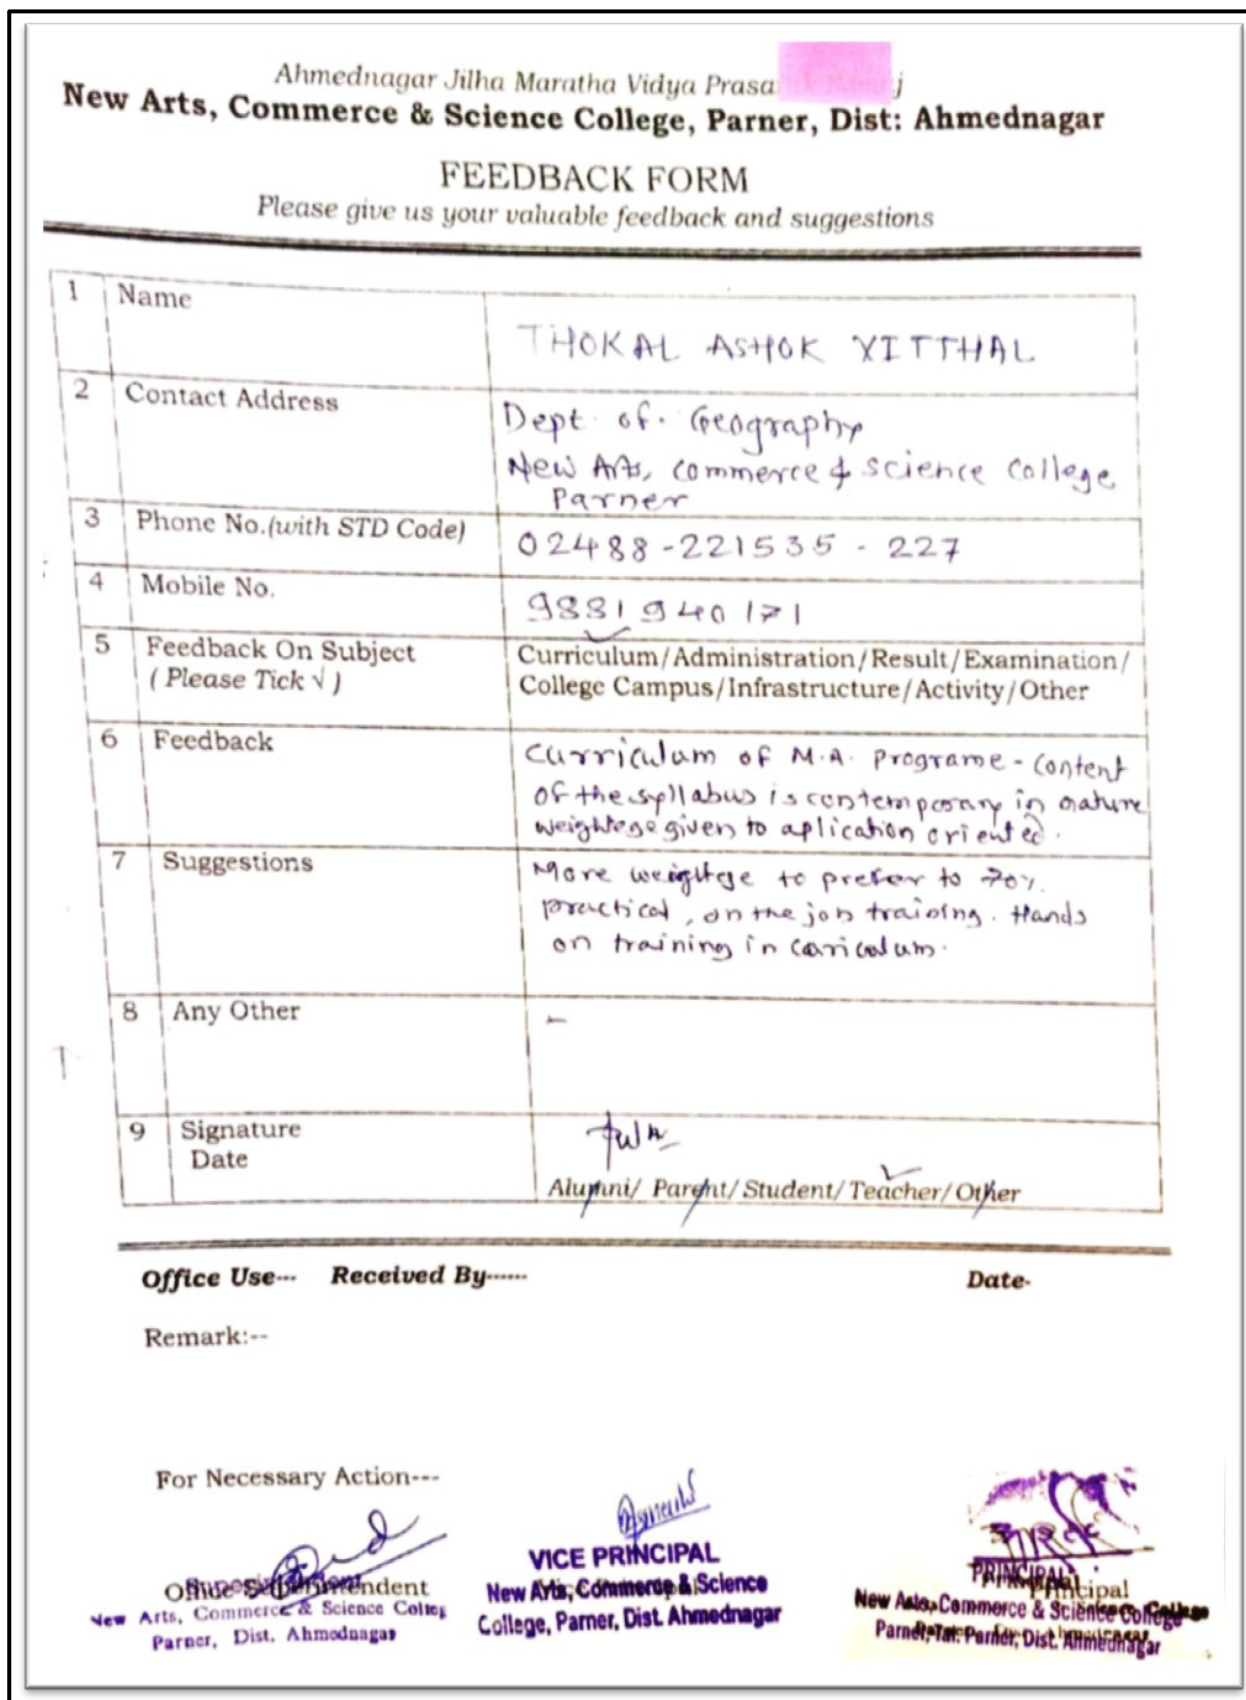 Ahmednagar Jilha Maratha Vidya Prasa
New Arts, Commerce & Science College, Parner, Dist: Ahmednagar
FEEDBACK FORM
Please give us your valuable feedback and suggestions
1 Name
THOKAL ASHOK VITTHAL
2 Contact Address
Dept. of. Geography
New Arts, commerce & science College
Parner
3 Phone No.(with STD Code)
02488-221535 - 227
4 Mobile No.
9881940171
5 Feedback On Subject
( Please Tick √ )
Curriculum/Administration/Result/Examination/
College Campus/Infrastructure/Activity/Other
6 Feedback
Curriculum of M.A. Programe - Content
of the syllabus is contemporary in nature
weightege given to aplication oriented.
7 Suggestions
More weightge to prefer to 70%
practical, on the job training. Hands
on training in
8 Any Other
-
9 Signature
Date
Alumni/ Parent/ Student/ Teacher/ Other
Office Use--- Received By------ Date-
Remark:--
For Necessary Action---
Office Superintendent
New Arts, Commerce & Science Colleg
Parner, Dist. Ahmednagar
VICE PRINCIPAL
New Arts, Commerce & Science
College, Parner, Dist. Ahmednagar
PRINCIPAL
Principal
New Arts, Commerce & Science College
Parner, Tal. Parner, Dist. Ahmednagar